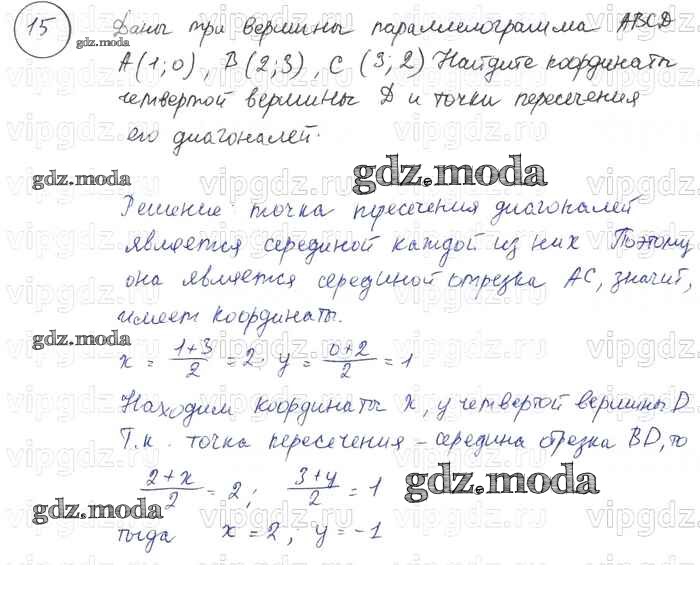 15 Даны три вершины параллелограмма ABCD
gdz.moda
A(1;0), B(2;3), C(3;2) Найдите координаты
четвертой вершины D и точки пересечения
его диагоналей.
gdz.moda
gdz.moda
Решение: точка пересечения диагоналей
является серединой каждой из них Поэтому
она является серединой отрезка AC, значит,
имеет координаты.
gdz.moda
x = (1+3)/2 = 2; y = (0+2)/2 = 1
Находим координаты x, y четвертой вершины D.
Т.к. точка пересечения – середина отрезка BD, то
(2+x)/2 = 2; (3+y)/2 = 1
gdz.moda
gdz.moda
тогда x = 2; y = -1
vipgdz.ru